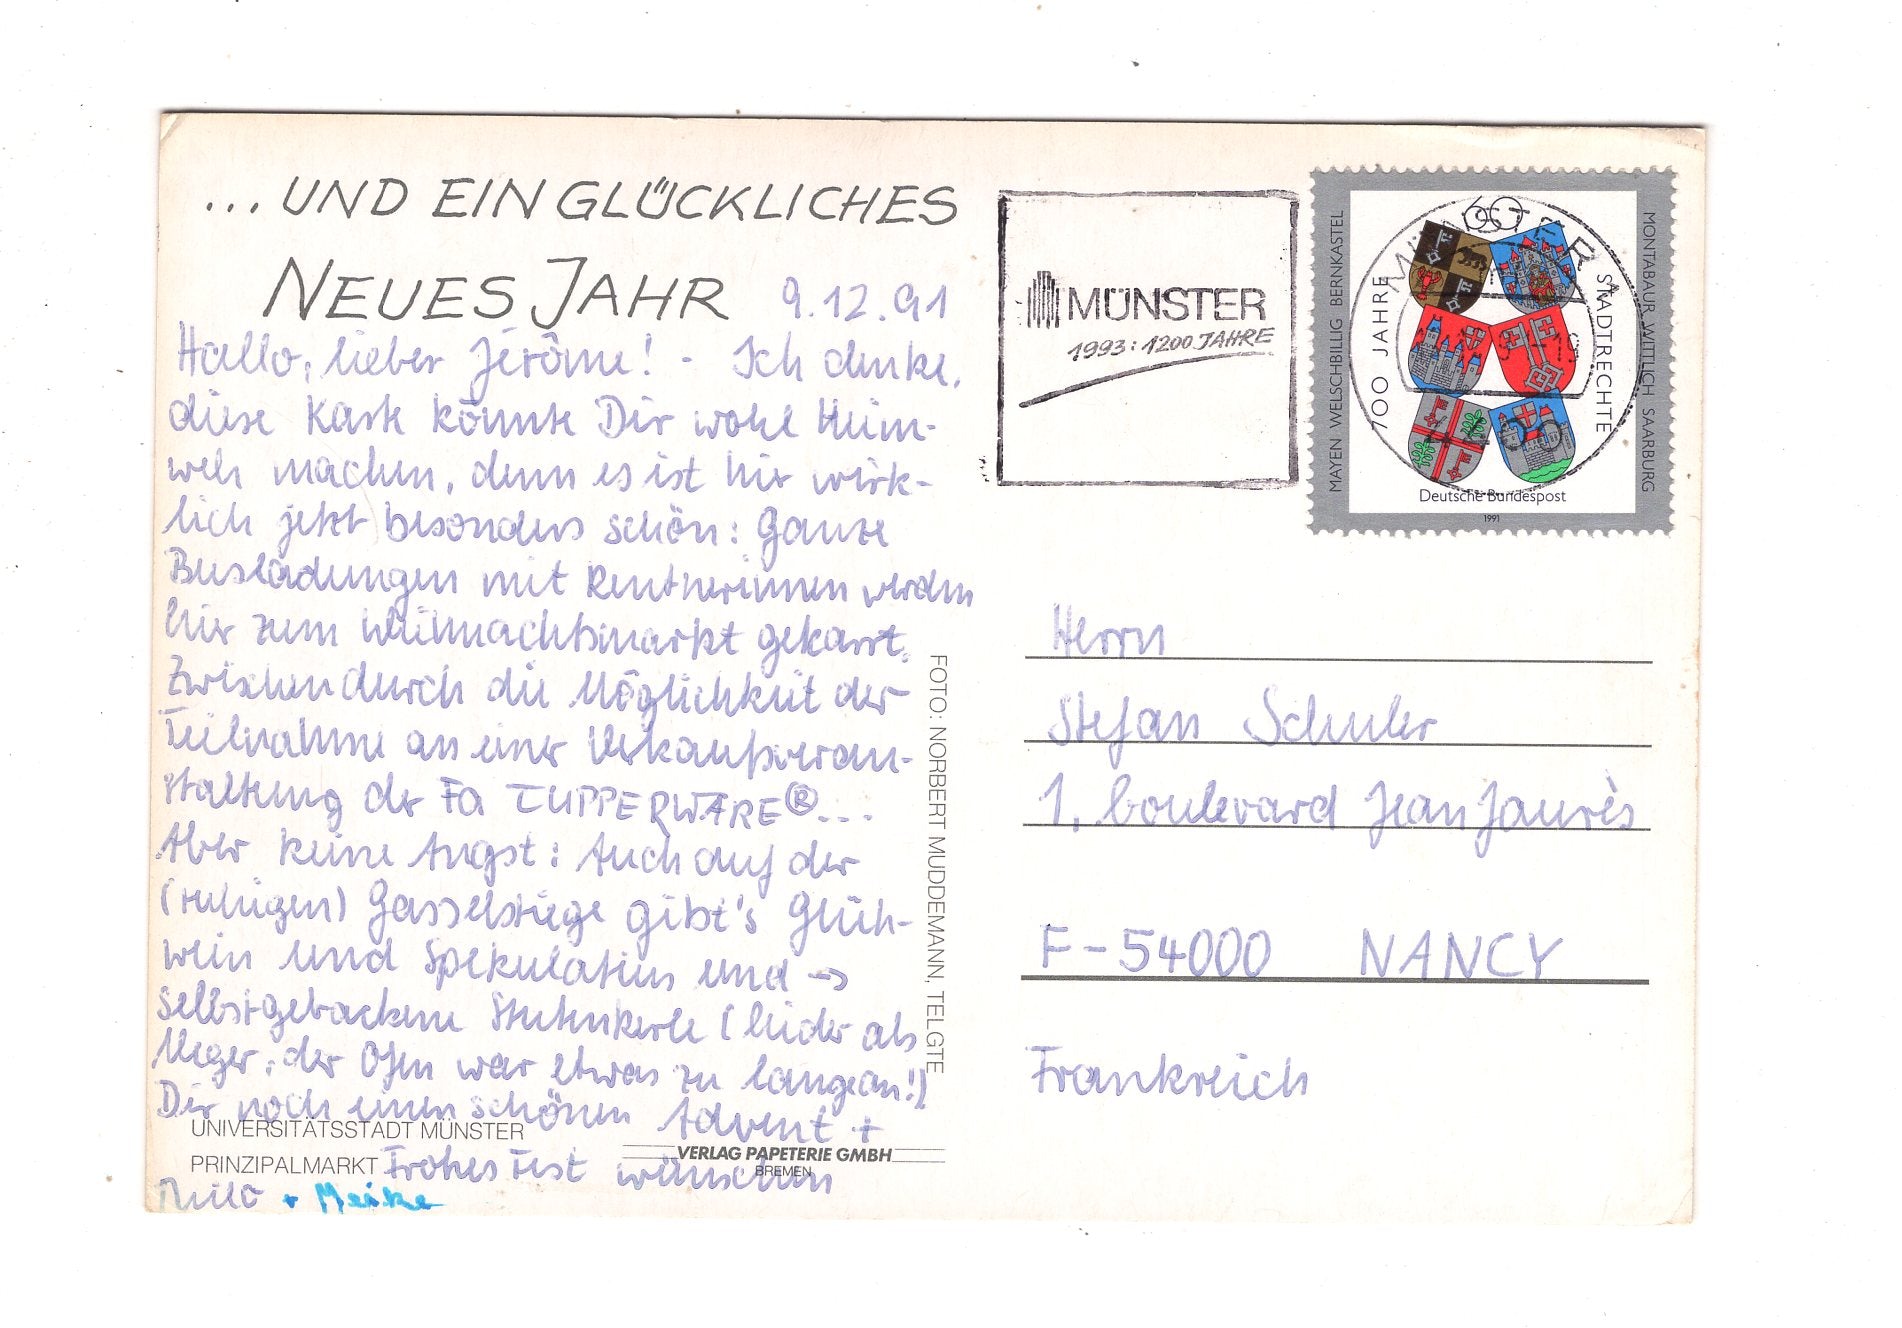 ... UND EIN GLÜCKLICHES
NEUES JAHR
9.12.91
Hallo, lieber Jérôme! - Ich denke,
diese Karte könnte Dir wohl Heim-
weh machen, denn es ist hier wirk-
lich jetzt besonders schön: Ganze
Busladungen mit Rentnerinnen werden
hier zum Weihnachtsmarkt gekarrt.
Zwischendurch die Möglichkeit der
Teilnahme an einer Verkaufsveran-
staltung der Fa TUPPERWARE®...
Aber keine Angst: Auch auf der
(ruhigen) Gasselstiege gibt's Glüh-
wein und Spekulatius und →
selbstgebackene Stutenkerle (leider als
Neger, der Ofen war etwas zu lange an!)
Dir noch einen schönen Advent +
Frohes Fest wünschen
+ Meike
UNIVERSITÄTSSTADT MÜNSTER
PRINZIPALMARKT
VERLAG PAPETERIE GMBH
BREMEN
FOTO: NORBERT MUDDEMANN, TELGTE
MÜNSTER
1993: 1200 JAHRE
MÜNSTER
60
700 JAHRE
STADTRECHTE
MAYEN WELSCHBILLIG BERNKASTEL
MONTABAUR WITTLICH SAARBURG
Deutsche Bundespost
1991
Herrn
Stefan Schuler
1, boulevard Jean Jaurès
F-54000 NANCY
Frankreich